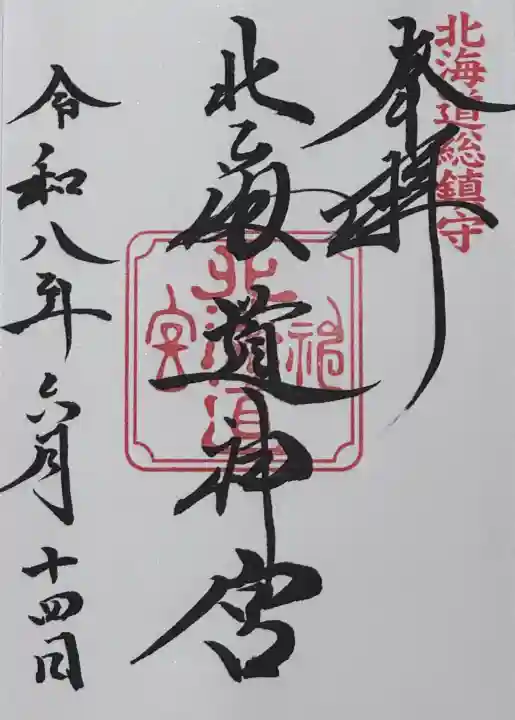 北海道総鎮守
奉拝
北海道神宮
北海道
神
宮
令和八年六月十四日